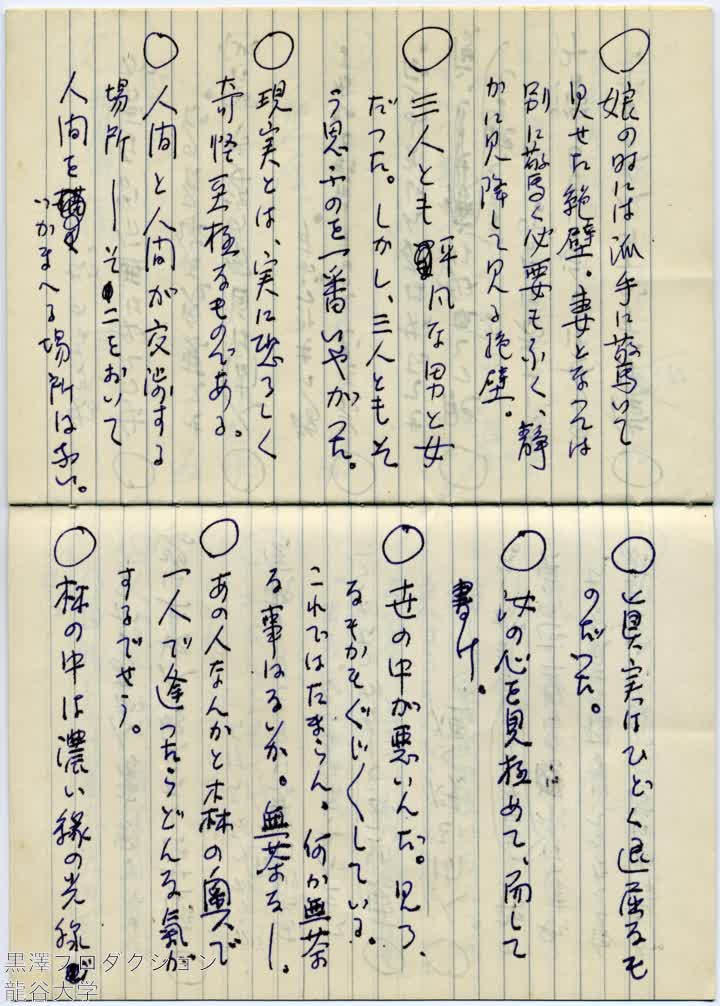 ○娘の時には派手に驚いて
見せた絶壁。妻となつては
別に驚く必要もなく、静
かに見降して見る絶壁。
○三人とも平凡な男と女
だつた。しかし、三人ともそ
う思ふのを一番いやがつた。
○現実とは、実に恐ろしく
奇怪至極なものである。
○人間と人間が交渉する
場所―そこをおいて
人間を
つかまへる場所はない。
○真実はひどく退屈なも
のだつた。
○汝の心を見極めて、而して
書け。
○世の中が悪いんだ。見ろ、
なにもかもぐじ〱している。
これではたまらん。何か無茶
な事はないか。無茶なー。
○あの人なんかと林の奥で
一人で逢つたらどんな氣が
するでせう。
○林の中は濃い緑の光線
黒澤プロダクション
龍谷大学